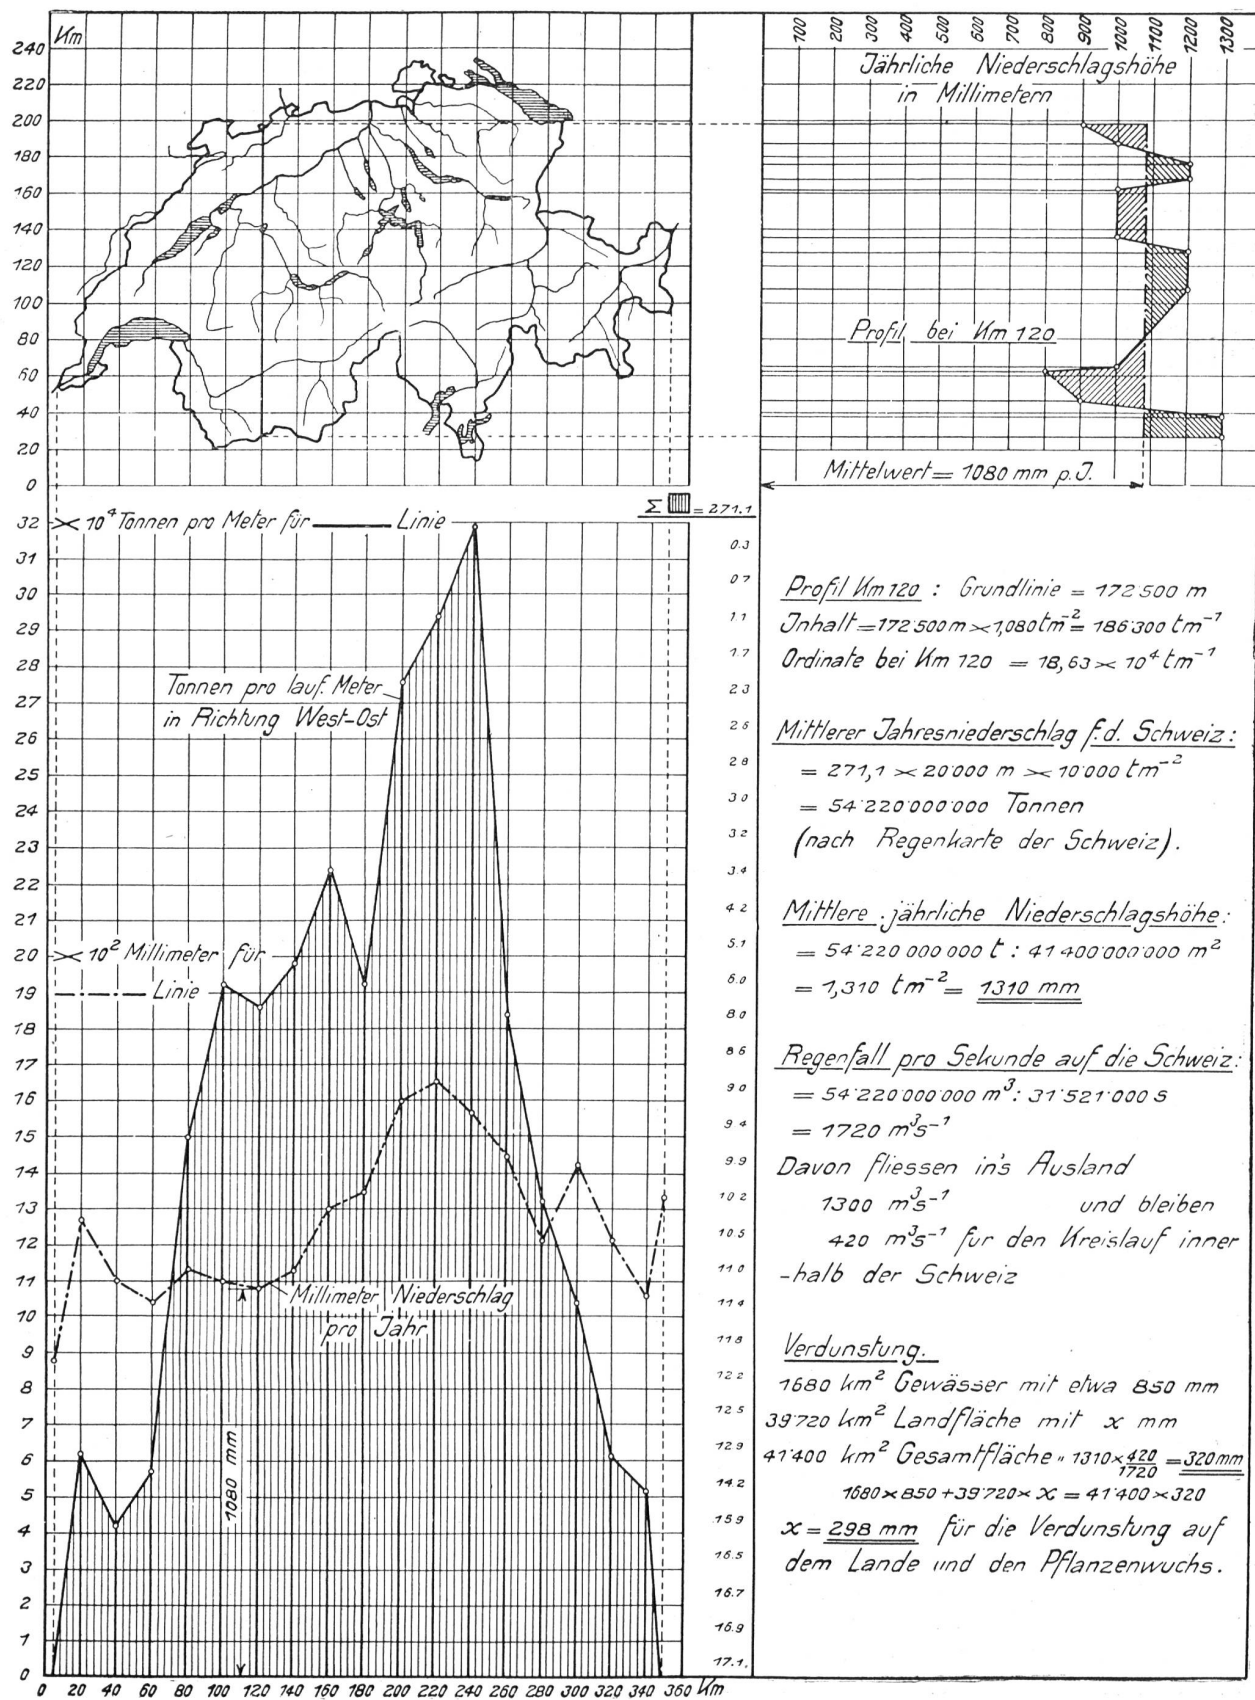 Km
240
220
200
180
160
140
120
100
80
60
40
20
0
100 200 300 400 500 600 700 800 900 1000 1100 1200 1300
Jährliche Niederschlagshöhe
in Millimetern
Profil bei Km 120
Mittelwert = 1080 mm p.J.
Σ = 271.1
× 10⁴ Tonnen pro Meter für Linie
32
31
30
29
28
27
26
25
24
23
22
21
20
19
18
17
16
15
14
13
12
11
10
9
8
7
6
5
4
3
2
1
0
Tonnen pro lauf. Meter
in Richtung West-Ost
× 10² Millimeter für
Linie
Millimeter Niederschlag
pro Jahr
1080 mm
0 20 40 60 80 100 120 140 160 180 200 220 240 260 280 300 320 340 360 Km
0.3
0.7
1.1
1.7
2.3
2.5
2.8
3.0
3.2
3.4
4.2
5.1
6.0
8.0
8.6
9.0
9.4
9.9
10.2
10.5
11.0
11.4
11.8
12.2
12.5
12.9
14.2
15.9
16.5
16.7
16.9
17.1
Profil Km 120 : Grundlinie = 172'500 m
Inhalt = 172'500 m × 1,080 tm⁻² = 186'300 tm⁻¹
Ordinate bei Km 120 = 18,63 × 10⁴ tm⁻¹
Mittlerer Jahresniederschlag f.d. Schweiz:
= 271,1 × 20'000 m × 10'000 tm⁻²
= 54'220'000'000 Tonnen
(nach Regenkarte der Schweiz).
Mittlere jährliche Niederschlagshöhe:
= 54'220'000'000 t : 41'400'000'000 m²
= 1,310 tm⁻² = 1310 mm
Regenfall pro Sekunde auf die Schweiz:
= 54'220'000'000 m³ : 31'521'000 s
= 1720 m³s⁻¹
Davon fliessen in's Ausland
1300 m³s⁻¹ und bleiben
420 m³s⁻¹ für den Kreislauf inner
-halb der Schweiz
Verdunstung.
1680 km² Gewässer mit etwa 850 mm
39'720 km² Landfläche mit x mm
41'400 km² Gesamtfläche " 1310 × 420/1720 = 320 mm
1680 × 850 + 39'720 × x = 41'400 × 320
x = 298 mm für die Verdunstung auf
dem Lande und den Pflanzenwuchs.